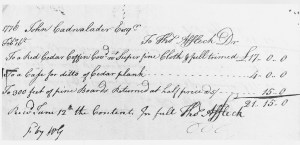 1776 John Cadwalader Esqr.
To Thos. Affleck Dr
To a Red Cedar Coffin Cover'd wt Super fine Cloth & full trimed £17-0-0
To a Case for ditto of Cedar plank 4-0-0
To 300 feet of pine Boards Returned at half price 15-0
21-15-0
Recd June 12th the Contents In full Thos. Affleck